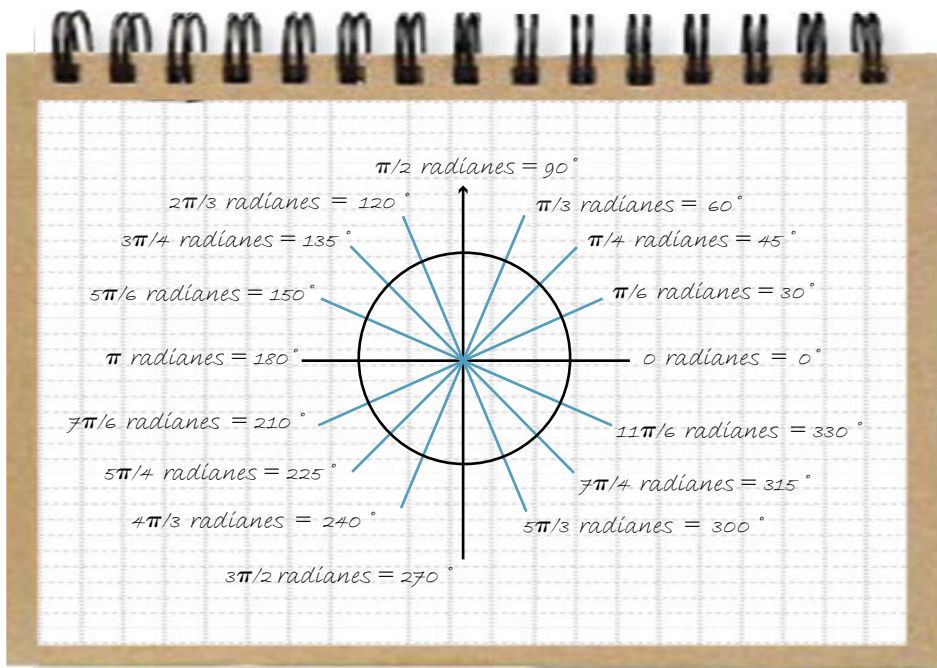 π/2 radíanes = 90°
2π/3 radíanes = 120°
π/3 radíanes = 60°
3π/4 radíanes = 135°
π/4 radíanes = 45°
5π/6 radíanes = 150°
π/6 radíanes = 30°
π radíanes = 180°
0 radíanes = 0°
7π/6 radíanes = 210°
11π/6 radíanes = 330°
5π/4 radíanes = 225°
7π/4 radíanes = 315°
4π/3 radíanes = 240°
5π/3 radíanes = 300°
3π/2 radíanes = 270°